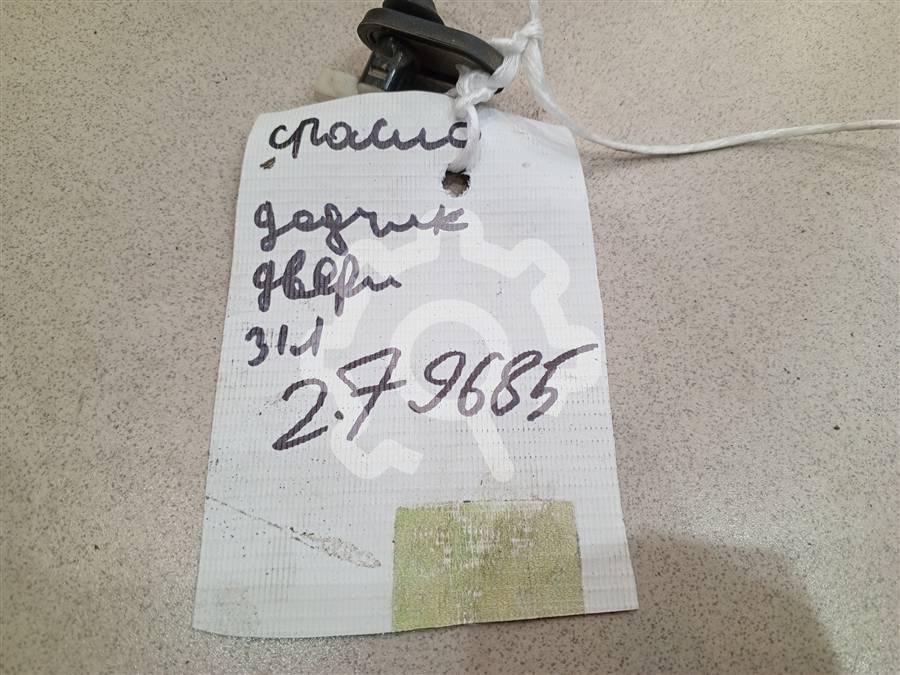 спасио
дадчик
двери
31.1
2.79685